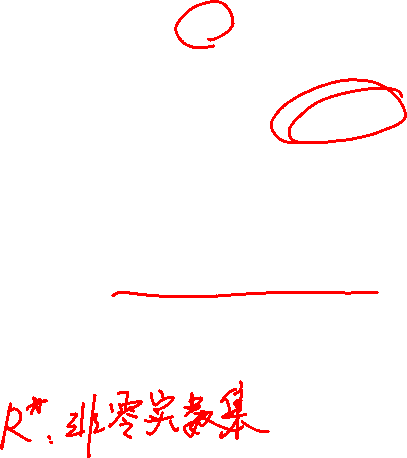 R*: 非零实数集